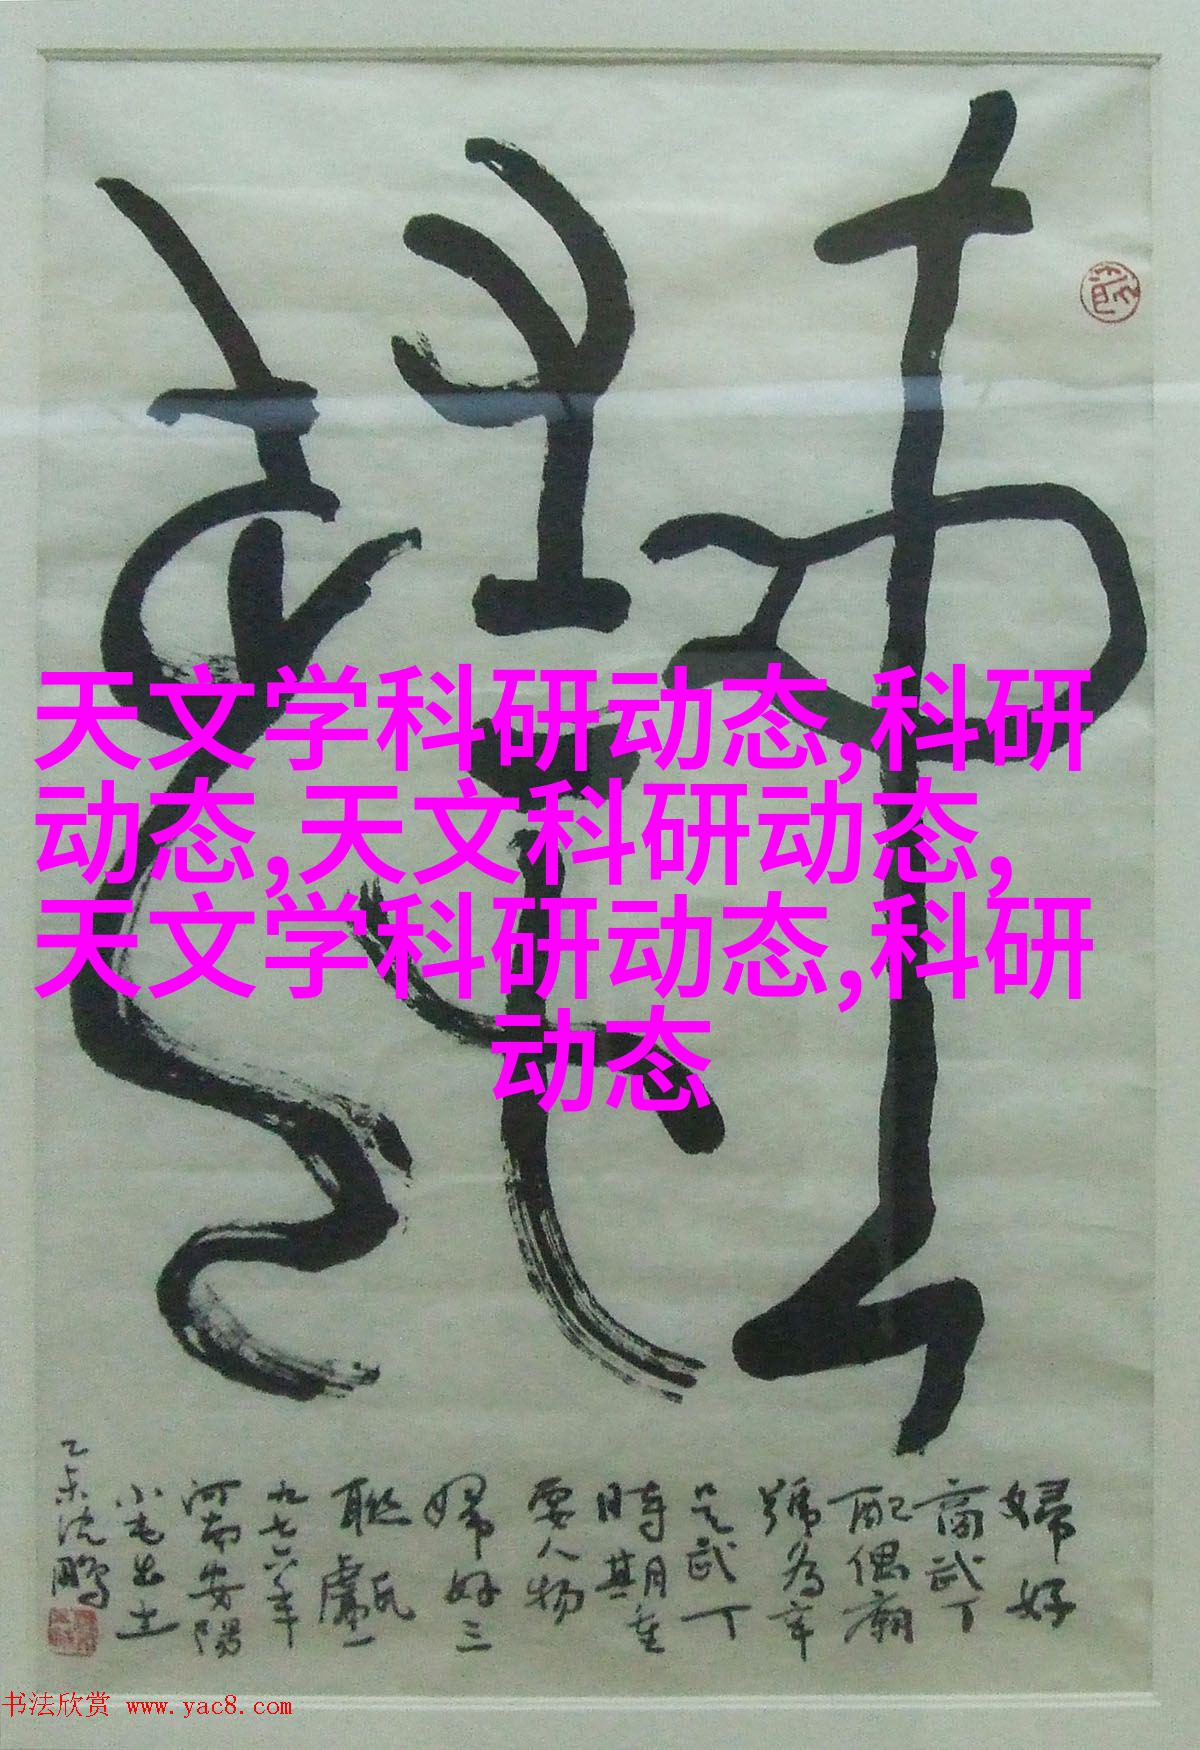 天文学科研动态,科研
动态,天文科研动态,
天文学科研动态,科研
动态
婦好
商武丁
配偶廟
號為辛
是武丁
時期重
要人物
婦好三
聯甗一
九七六年
河南安陽
小屯出土
乙未沈鹏
书法欣赏 www.yac8.com